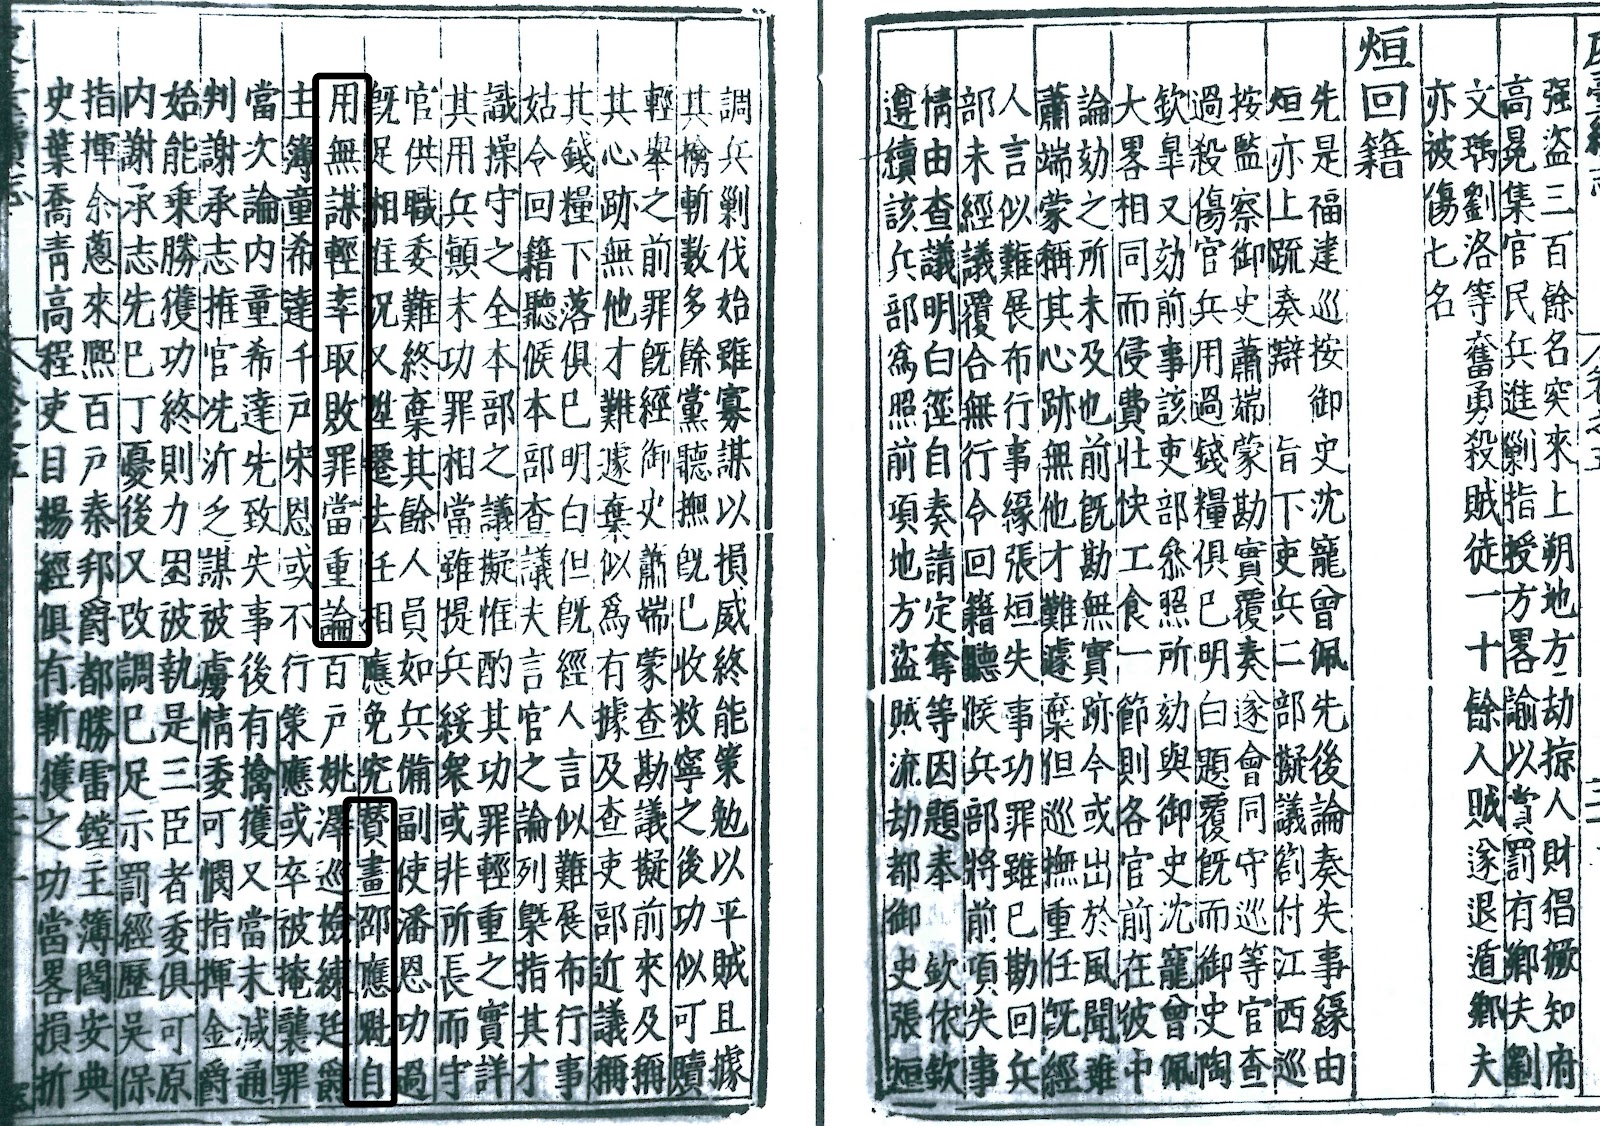 强盗三百餘名突來上朔地方劫掠人財倡橛知府
高冕集官民兵進剿指授方畧諭以賞罰有鄉夫劉
文瑀劉洛等奮勇殺賊徒一十餘人賊遂退遁鄉夫
亦被傷七名
烜回籍
先是福建巡按御史沈寵曾佩先後論奏失事緣由
烜亦上疏奏辯 旨下吏兵二部擬議劄付江西巡
按監察御史蕭端蒙勘實覆奏遂會同守巡等官查
過殺傷官兵用過錢糧俱已明白題覆既而御史陶
欽臯又劾前事該吏部叅照所劾與御史沈寵曾佩
大畧相同而侵費壯快工食一節則各官前在彼中
論劾之所未及也前既勘無實跡今或出於風聞雖
蕭端蒙稱其心跡無他才難遽棄但巡撫重任既經
人言似難展布行事緣張烜失事功罪雖已勘回兵
部未經議覆合無行令回籍聽候兵部將前項失事
情由查議明白徑自奏請定奪等因題奉 欽依欽
遵續該兵部為照前項地方盜賊流劫都御史張烜
調兵剿伐始雖寡謀以損威終能策勉以平賊且據
其擒斬數多餘黨聽撫既已收敉寧之後功似可贖
輕舉之前罪既經御史蕭端蒙查勘議擬前來及稱
其心跡無他才難遽棄似為有據及查吏部近議稱
其錢糧下落俱已明白但既經人言似難展布行事
姑令回籍聽候本部查議夫言官之論列槩指其才
識操守之全本部之議擬惟酌其功罪輕重之實詳
其用兵顛末功罪相當雖提兵綏衆或非所長而守
官供職委難終棄其餘人員如兵備副使潘恩功過
既足相准况又陞遷去任相應免究賛畫邵應魁自
用無謀輕率取敗罪當重論百戶姚澤巡撿練廷爵
主簿童希達千戶宋恩或不行策應或卒被掩襲罪
當次論内童希達先致失事後有擒獲又當末減通
判謝承志推官冼沂乏謀被虜情委可憫指揮金爵
始能乘勝獲功終則力困被執是三臣者委俱可原
内謝承志先已丁憂後又改調已足示罰經歷吳保
指揮余蔥來熙百戶秦邦爵都勝雷鏜主簿閻安典
史葉喬青高程吏目揚經俱有斬獲之功當畧損折